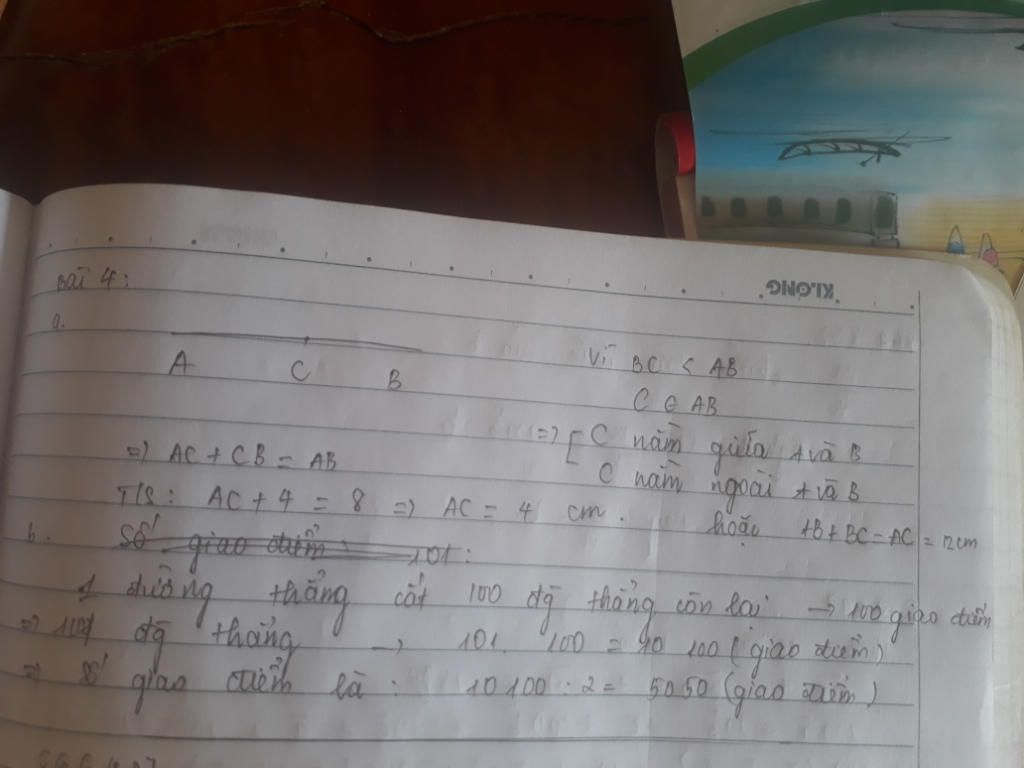 KLONG
Bài 4:
a.
A C B
Vì BC < AB
C ∈ AB
=> [ C nằm giữa A và B
C nằm ngoài A và B
=> AC + CB = AB
T/S: AC + 4 = 8 => AC = 4 cm.
hoặc AB + BC = AC = 12cm
b. Số giao điểm 101:
1 đường thẳng cắt 100 đg thẳng còn lại -> 100 giao điểm
=> 101 đg thẳng -> 101. 100 = 10 100 (giao điểm)
=> Số giao điểm là: 10 100 : 2 = 5050 (giao điểm)